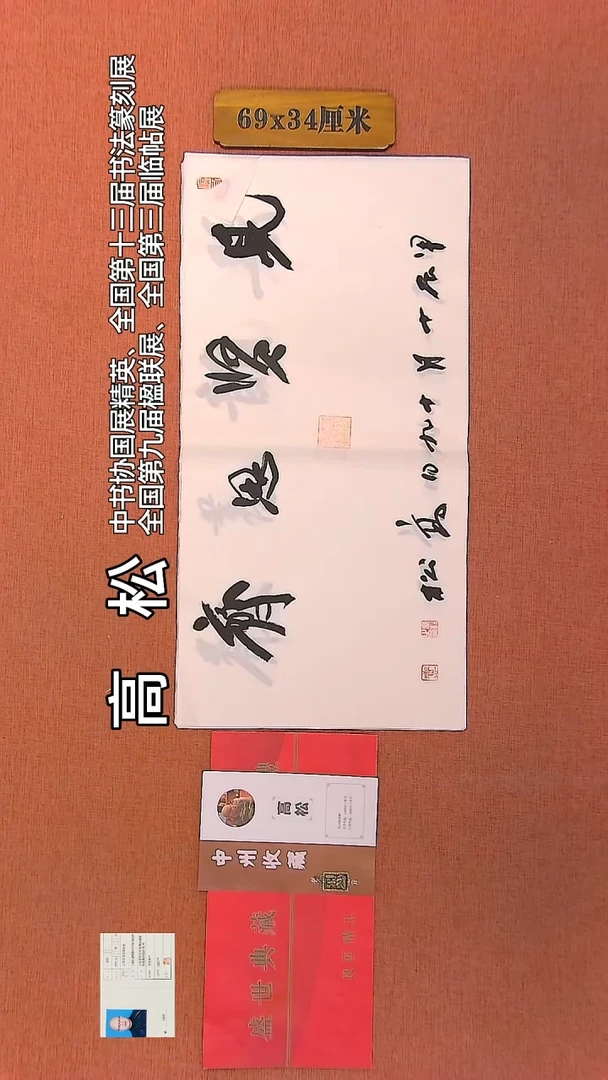 69x34厘米
高松
中书协国展精英、全国第十三届书法篆刻展
全国第九届楹联展、全国第三届临帖展
見賢思齊
甲辰十月十九日高松
高松
中州收藏
盛世典藏